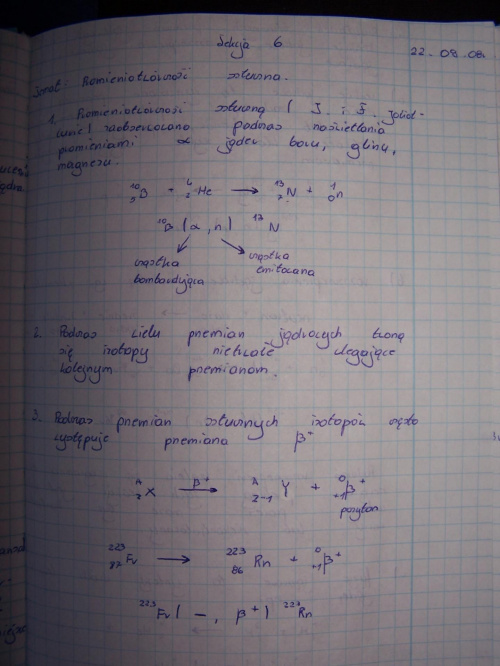 Lekcja 6
22.08.08r.
Temat: Promieniotwórczość sztuczna.
1. Promieniotwórczość sztuczną ( I. i F. Joliot-
Curie) zaobserwowano podczas naświetlania
promieniami α jąder boru, glinu,
magnezu.
¹⁰₅B + ⁴₂He → ¹³₇N + ¹₀n
¹⁰B (α, n) ¹³N
cząstka bombardująca
cząstka emitowana
2. Podczas wielu przemian jądrowych tworzą
się izotopy nietrwałe ulegające
kolejnym przemianom.
3. Podczas przemian sztucznych izotopów często
występuje przemiana β⁺
ᴬ₂X β⁺→ ᴬ₂₋₁Y + ⁰₊₁β⁺
pozyton
²²³₈₇Fr → ²²³₈₆Rn + ⁰₊₁β⁺
²²³Fr ( – , β⁺) ²²³Rn